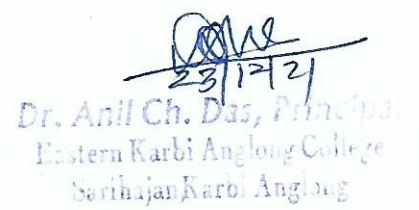 23/12/21
Dr. Anil Ch. Das, Principal
Eastern Karbi Anglong College
Sarihajan, Karbi Anglong